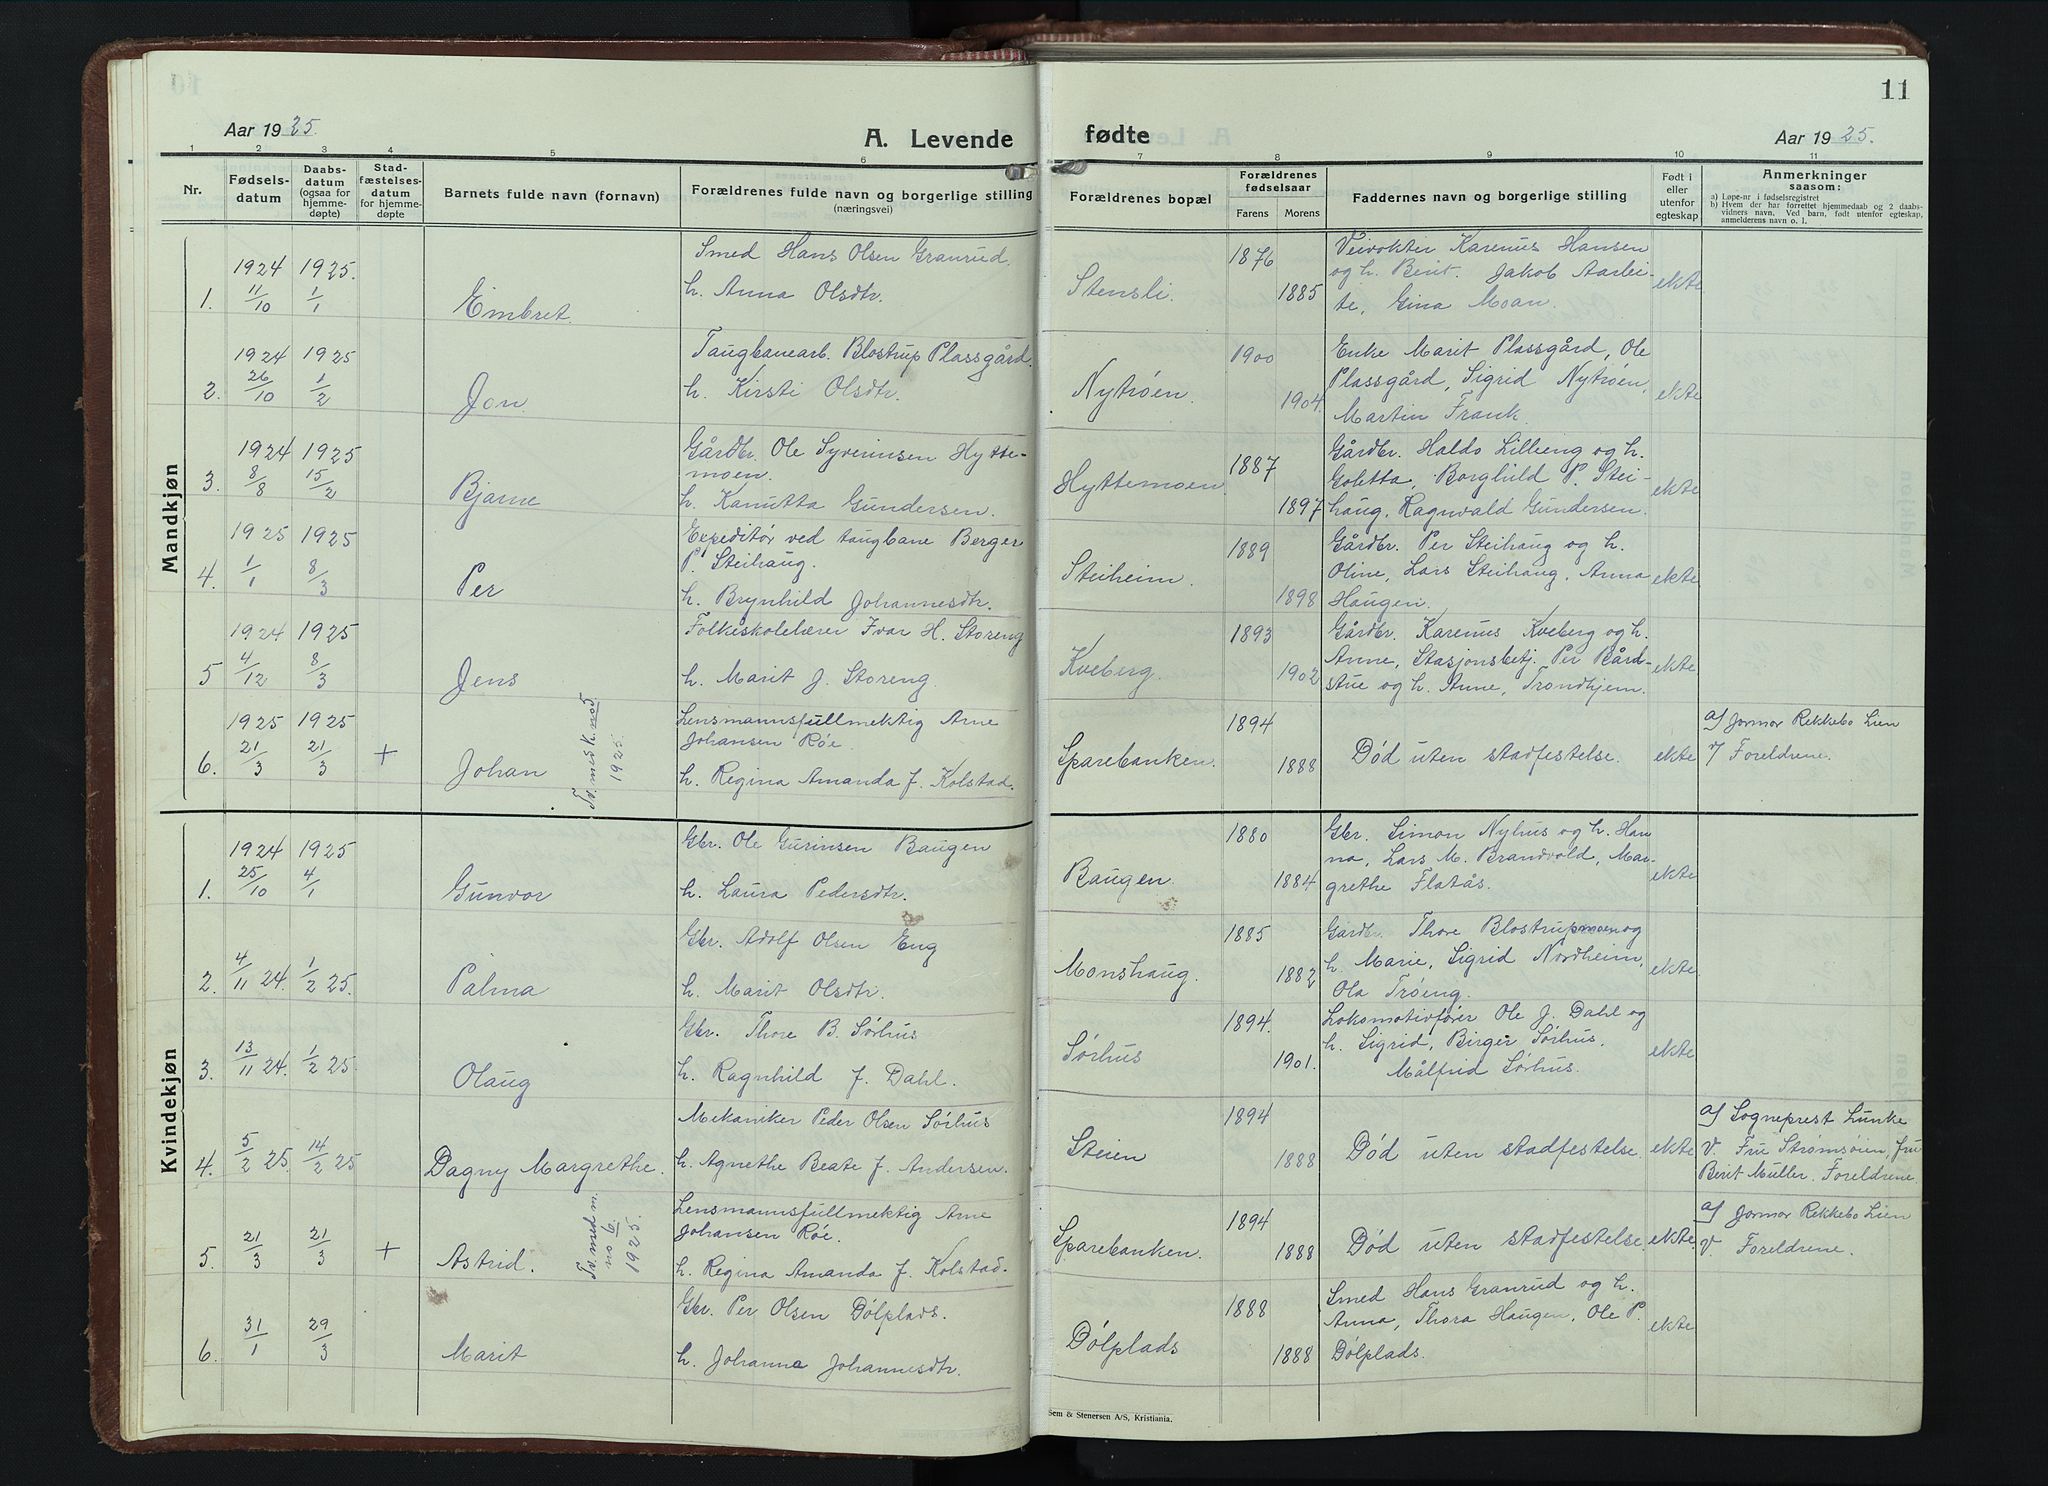 Aar 1925.
A. Levende fødte
Aar 1925.
11
1 2 3 4 5 6 7 8 9 10 11
Nr.
Fødselsdatum
Daabsdatum (ogsaa for hjemmedøpte)
Stadfæstelsesdatum for hjemmedøpte
Barnets fulde navn (fornavn)
Forældrenes fulde navn og borgerlige stilling
(næringsvei)
Forældrenes bopæl
Forældrenes fødselsaar
Farens Morens
Faddernes navn og borgerlige stilling
Født i eller utenfor egteskap
Anmerkninger
saasom:
a) Løpe-nr i fødselsregistret
b) Hvem der har forrettet hjemmedaab og 2 daabsvidners navn. Ved barn, født utenfor egteskap, anmelderens navn o. l.
Mandkjøn
1. 1924 11/10 1925. 1/1 Embret.
Smed Hans Olsen Granrud
h. Anna Olsdtr.
Stensli. 1876 1885
Veivokter Karenus Hansen
og h. Berit. Jakob Aarlei-
te, Gina Moan.
ekte
2. 1924 26/10 1925 1/2 Jon.
Taugbanearb. Blostrup Plassgård.
h. Kirsti Olsdtr.
Nytrøen. 1900 1904.
Enke Marit Plassgård, Ole
Plassgård, Sigrid Nytrøen,
Martin Frank.
ekte
3. 1924 8/8 1925 15/2 Bjarne
Gårdbr. Ole Syverinsen Hytte-
moen.
h. Kanutta Gundersen.
Hyttemoen 1887 1897
Gårdbr. Haldo Lilleeng og h.
Goletta, Borghild P. Stei-
haug, Ragnvald Gundersen.
ekte
4. 1925 1/1 1925 8/3 Per
Expeditør ved taugbane Berger
P. Steihaug.
h. Brynhild Johannesdtr.
Steiheim. 1889 1898
Gårdbr. Per Steihaug og h.
Oline, Lars Steihaug, Anna
Haugen.
ekte
5 1924 4/12 1925 8/3 Jens
Folkeskolelærer Ivar H. Storeng
h. Marit J. Storeng.
Kveberg. 1893 1902
Gårdbr. Karenus Kveberg og h.
Anne, Stasjonsbetj. Per Bård-
stue og h. Anne, Trondhjem.
ekte
6. 1925 21/3 1925 21/3 + Johan
Tv. med k. no 5
1925.
Lensmannsfullmektig Arne
Johansen Røe.
h. Regina Amanda J. Kolstad.
Sparebanken. 1894 1888
Død uten stadfestelse.
ekte
a/ Jormor Rekkebo Lien
V Foreldrene.
Kvindekjøn
1. 1924 25/10 1925 4/1 Gunvor
Gbr. Ole Gurinsen Baugen
h. Laura Pedersdtr.
Baugen. 1880 1884
Gbr. Simon Nyhus og h. Han-
na, Lars M. Brandvold, Mar-
grethe Flatås.
ekte
2. 4/11 24. 1/2 25. Palma
Gbr. Adolf Olsen Eng
h. Marit Olsdtr.
Monshaug. 1885 1882
Gardbr. Thore Blostrupmoen og
h. Marie, Sigrid Nordheim,
Ola Trøeng.
ekte
3. 13/11 24. 1/2 25. Olaug
Gbr. Thore B. Sørhus
h. Ragnhild J. Dahl.
Sørhus 1894. 1901.
Lokomotivfører Ole J. Dahl og
h. Sigrid, Birger Sørhus.
Målfrid Sørhus.
ekte
4. 5/2 25. 14/2 25 Dagny Margrethe.
Mekaniker Peder Olsen Sørhus
h. Agnethe Beate J. Andersen.
Steien 1894 1888
Død uten stadfestelse.
ekte
a/ Sogneprest Lunke
V. Fru Strømsøien, fru
Berit Müller. Foreldrene.
5. 21/3 21/3 + Astrid.
Tv. med m.
no 6.
1925.
Lensmannsfullmektig Arne
Johansen Røe.
h. Regina Amanda J. Kolstad.
Sparebanken. 1894 1888
Død uten stadfestelse.
ekte.
a/ Jormor Rekkebo Lien
V. Foreldrene.
6. 31/1 29/3 Marit
Gbr. Per Olsen Dølplads.
h. Johanne Johannesdtr.
Dølplads 1888 1888
Smed Hans Granrud og h.
Anna, Thora Haugen, Ole P.
Dølplads.
ekte
Sem & Stenersen A/S, Kristiania.